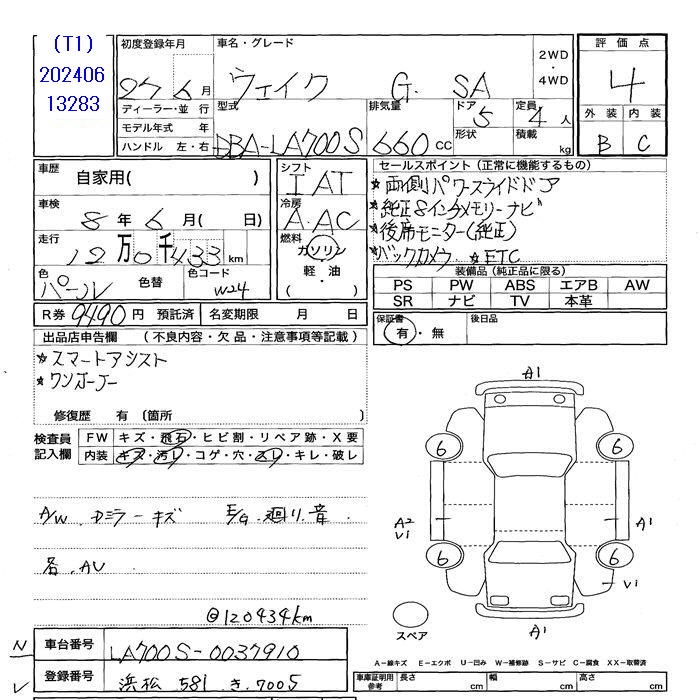 (T1)
202406
13283
初度登録年月
27 6月
ディーラー・並 行
モデル年式 年
ハンドル 左・右
車名・グレード
ウェイク G SA
2WD
・
4WD
型式
DBA-LA700S
排気量
660 CC
ドア
5
形状
定員
4 人
積載
kg
評価点
4
外装 内装
B C
車歴
自家用( )
車検
8年6月( 日)
走行
12万0千433km
色
パール
色替
色コード
W24
シフト
IAT
冷房
A.AC
燃料
ガソリン
軽・油
( )
セールスポイント(正常に機能するもの)
★両側パワースライドドア
★純正8インチメモリーナビ
★後席モニター(純正)
バックカメラ ★ETC
装備品(純正品に限る)
PS PW ABS エアB AW
SR ナビ TV 本革
R券 9490円 預託済 名変期限 月 日
保証書
有・無
後日品
出品店申告欄 (不良内容・欠品・注意事項等記載)
★スマートアシスト
★ワンオーナー
修復歴 有 (箇所 )
検査員
記入欄
FW キズ・飛石・ヒビ割・リペア跡・X要
内装 キズ・汚レ・コゲ・穴・スレ・キレ・破レ
A/W. Dミラーキズ E/G.廻り.音.
各.AU
@120434km
N
車台番号 LA700S-0037910
レ
登録番号 浜松 581 き.7005
A1
6 6
A2
V1
A1
6 6
V1
A1
スペア
A-線キズ E-エクボ U-凹み W-補修跡 S-サビ C-腐食 XX-取替済
車庫証明用
参考
長さ cm 幅 cm 高さ cm